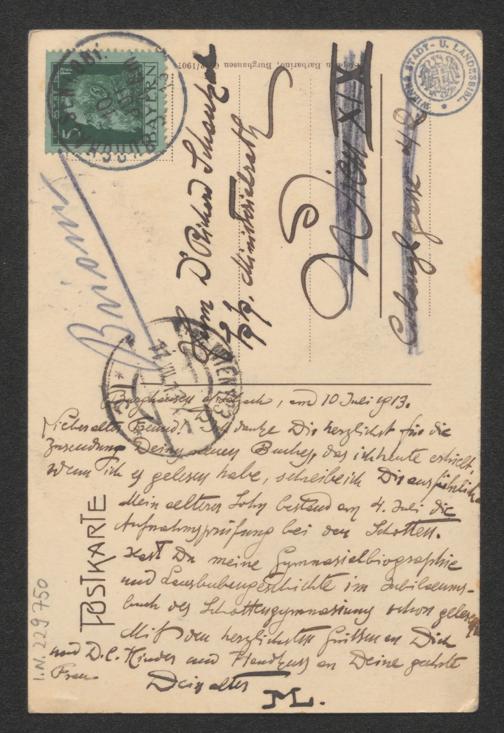 WIENER STADT- U. LANDESBIBL.
Barbarino, Burghausen
5
BAYERN
Herrn Dr Richard
k.k. Ministerialrath
Wien XIX
Briony
WIEN
Burghausen a. Salzach, am 10 Juli 1913.
Lieber alter Freund! Ich danke Dir herzlichst für die
Zusendung Deines neuen Buches, das ich heute erhielt.
Wenn ich es gelesen habe, schreibe ich Dir ausführlich.
Mein älterer Sohn bestand am 4. Juli die
Aufnahmsprüfung bei den Schotten.
Hast Du meine Gymnasialbiographie
und Lausbubengeschichte im Jubiläums-
buch des Schottengymnasiums schon gelesen?
Mit den herzlichsten Grüssen an Dich
und D. l. Kinder und Handkuss an Deine geehrte
Frau
Dein alter
M.
POSTKARTE
I.N. 229750